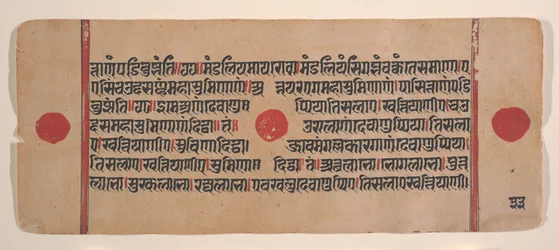 त्ताणं पडिबुज्झंति॥७७॥मंडलियमायरो वा मंडलियंसि गब्भं वक्कंतेसमाणे ए
एसिं चउद्दसण्हं महासुमिणाणं अन्नयरं एगं महासुमिणं पासित्ताणं पडि
बुज्झंति॥७८॥इमे य णं देवाणुप्पिया तिसलाए खत्तियाणीए चउ
द्दस महासुमिणा दिट्ठा॥तं॥उराला णं देवाणुप्पिया तिसला
ए खत्तियाणीए सुमिणा दिट्ठा॥जाव मंगल्लकारगा णं देवाणुप्पिया
तिसलाए खत्तियाणीए सुमिणा दिट्ठा॥तं॥अत्थलाभो॥भोगलाभो॥पुत्त
लाभो॥सुक्खलाभो॥रज्जलाभो॥एवं खलु देवाणुप्पिए तिसला खत्तियाणी॥
३३